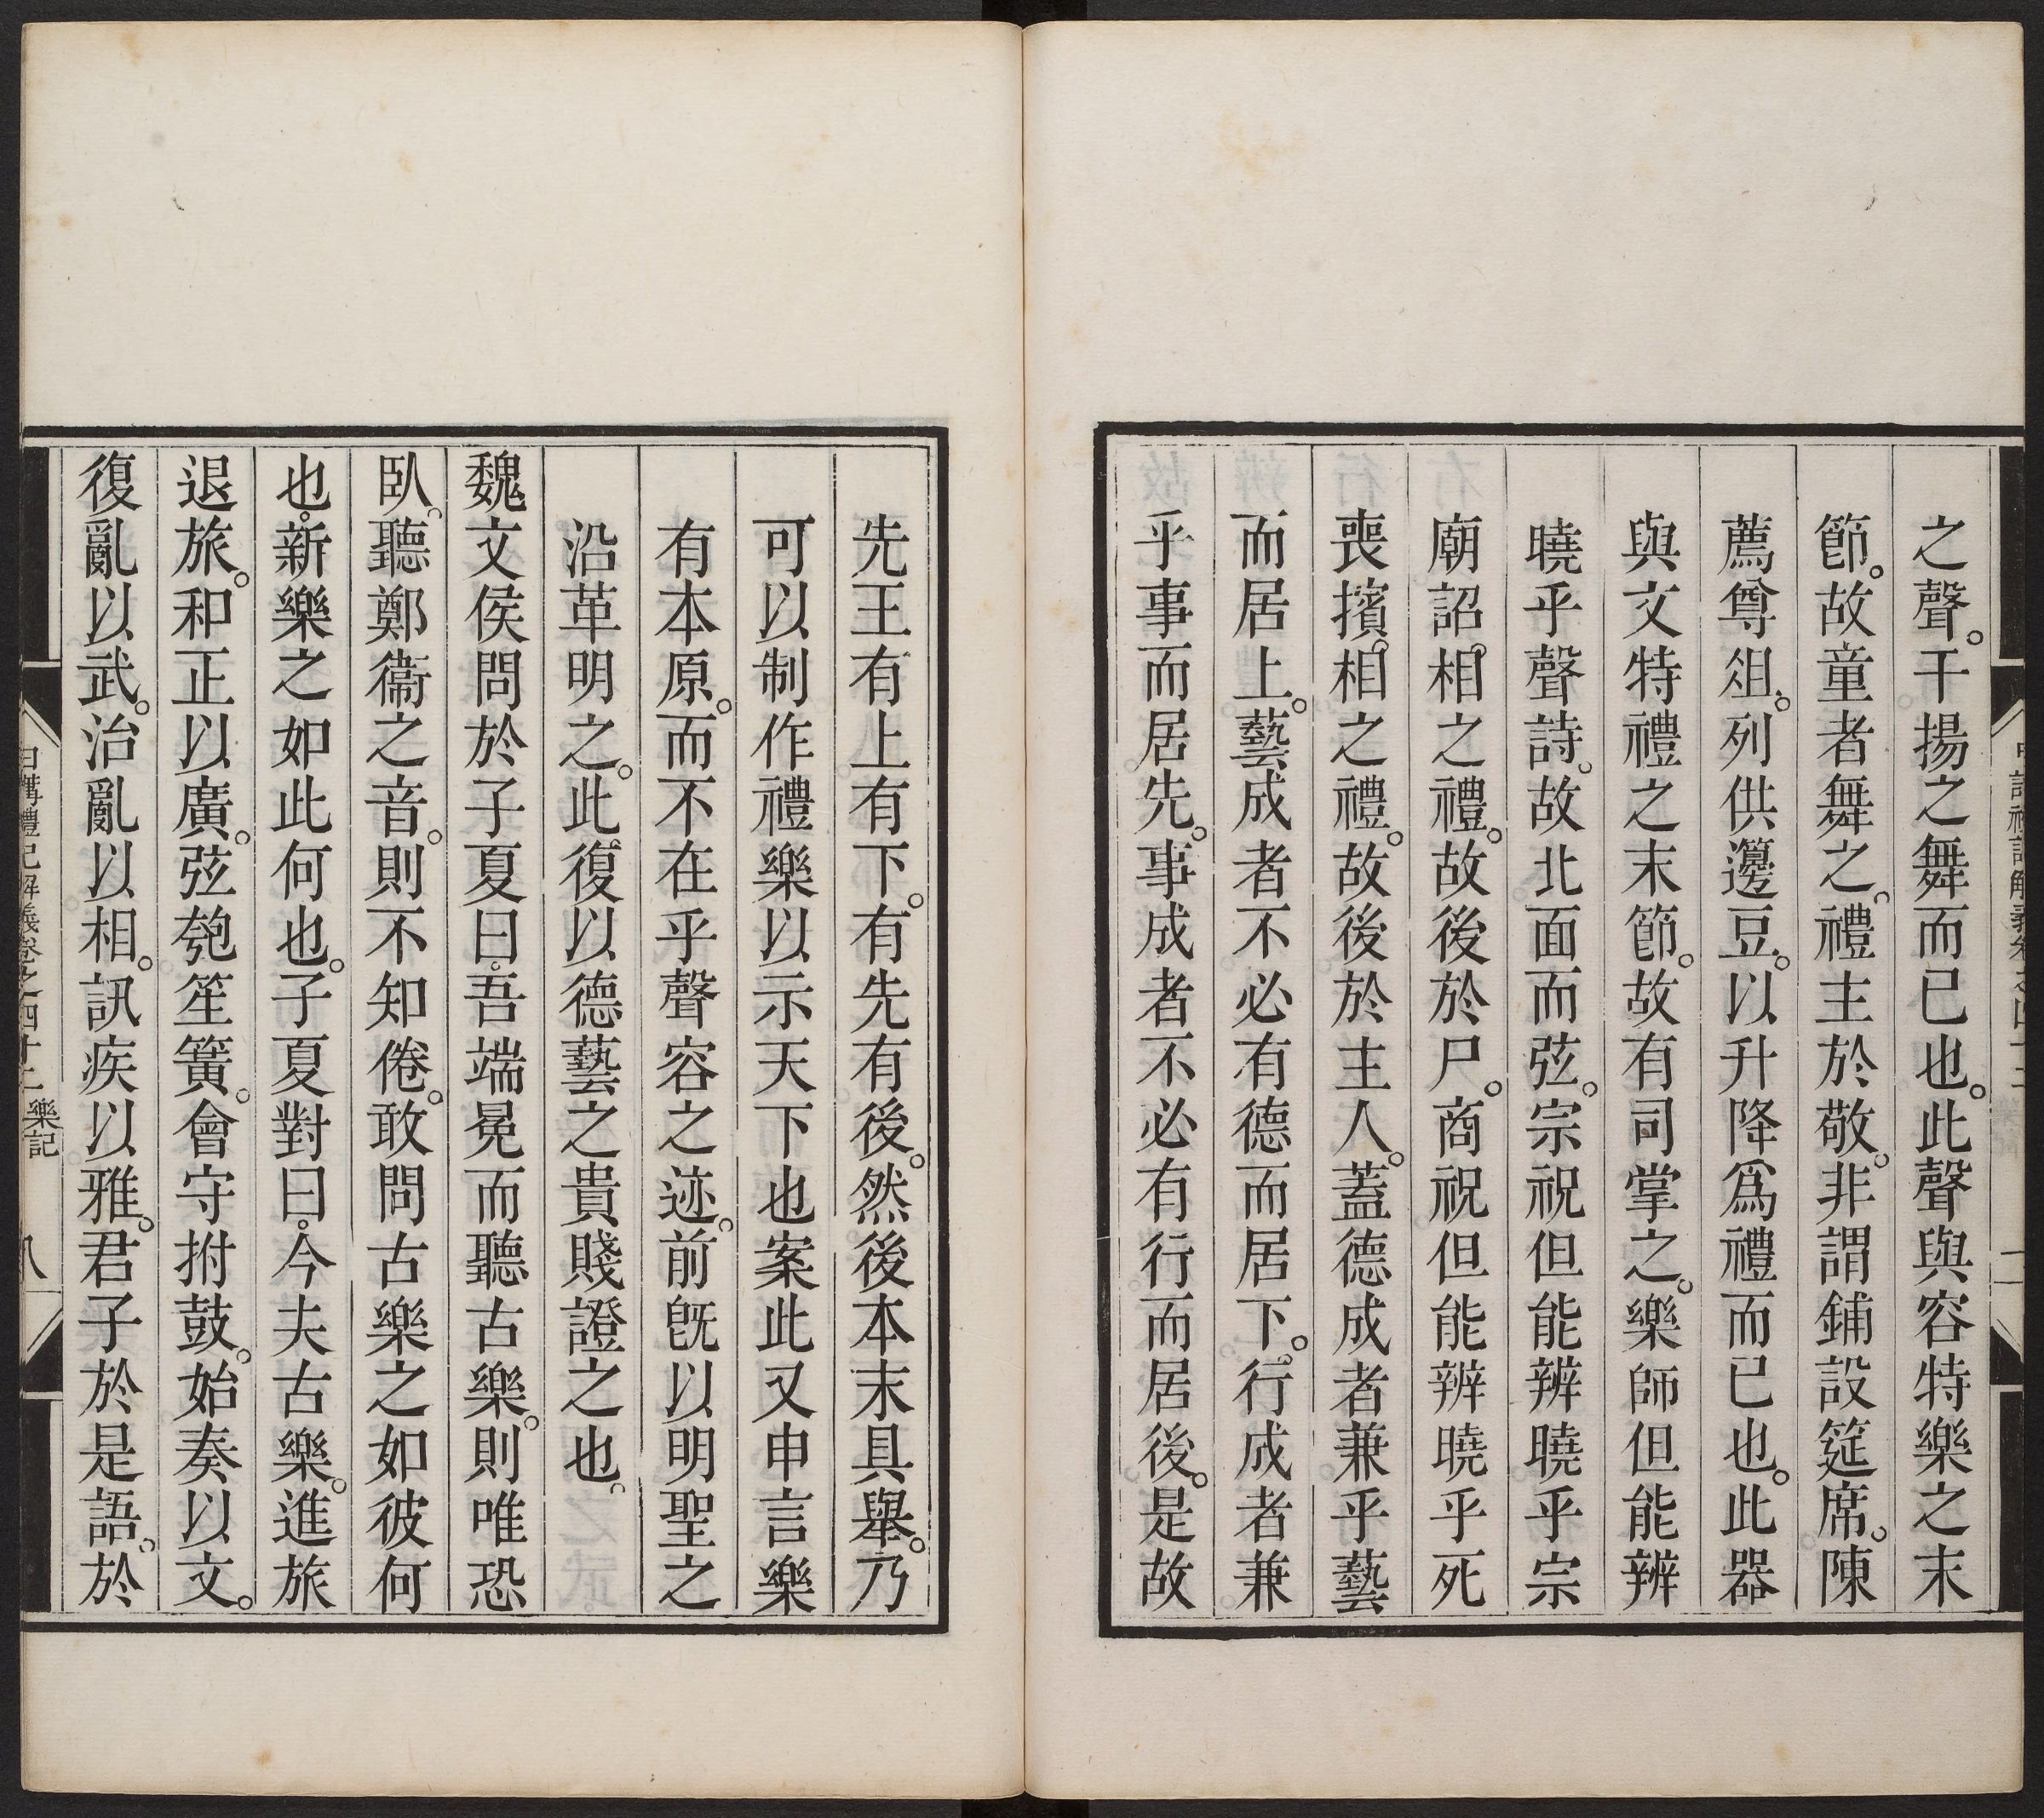 之聲。干揚之舞而已也。此聲與容特樂之末
節。故童者舞之。禮主於敬。非謂鋪設筵席。陳
薦尊俎。列供籩豆。以升降爲禮而已也。此器
與文特禮之末節。故有司掌之。樂師但能辨
曉乎聲詩。故北面而弦。宗祝但能辨曉乎宗
廟詔。相之禮。故後於尸。商祝但能辨曉乎死
喪擯。相之禮。故後於主人。蓋德成者兼乎藝
而居上。藝成者不必有德而居下。行成者兼
乎事而居先。事成者不必有行而居後。是故
先王有上有下。有先有後。然後本末具舉。乃
可以制作禮樂以示天下也案此又申言樂
有本原。而不在乎聲容之迹。前旣以明聖之
沿革明之。此復以德藝之貴賤證之也。
魏文侯問於子夏曰。吾端冕而聽古樂。則唯恐
臥。聽鄭衞之音。則不知倦。敢問古樂之如彼何
也。新樂之如此何也。子夏對曰。今夫古樂。進旅
退旅。和正以廣。弦匏笙簧。會守拊鼓。始奏以文。
復亂以武。治亂以相。訊疾以雅。君子於是語。於
日講禮記解義卷之四十二 樂記 八